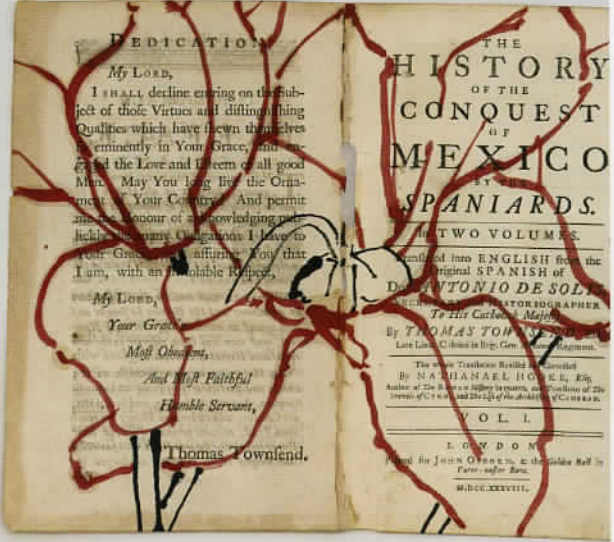 DEDICATION
My LORD,
I SHALL decline entring on the Sub-
ject of those Virtues and distinguishing
Qualities which have shewn themselves
eminently in Your Grace, and en-
gaged the Love and Esteem of all good
Men. May You long live the Orna-
ment of Your Country. And permit
me the Honour of acknowledging pub-
lickly the many Obligations I have to
Your Grace, assuring You that
I am, with an Respect,
My LORD,
Your Grace
Most Obedient,
And Most Faithful
Humble Servant,
Thomas Townsend.
THE
HISTORY
OF THE
CONQUEST
OF
MEXICO
BY THE
SPANIARDS.
In TWO VOLUMES.
Translated into ENGLISH from the
Original SPANISH of
Don ANTONIO DE SOLIS,
SECRETARY and HISTORIOGRAPHER
To His Catholick Majesty
By THOMAS TOWNSEND,
Late Lieut. Colonel in Brig. Gen. Regiment.
The whole Translation Revised and Corrected
By NATHANAEL HOOKE, Esq;
Author of The ROMAN History in quarto, and Translator of The
Travels of CYRUS, and The Life of the Archbishop of CAMBRAY.
VOL. I.
LONDON
Printed for JOHN OSBORN, at the Golden Ball in
Pater-noster Row.
M.DCC.XXXVIII.